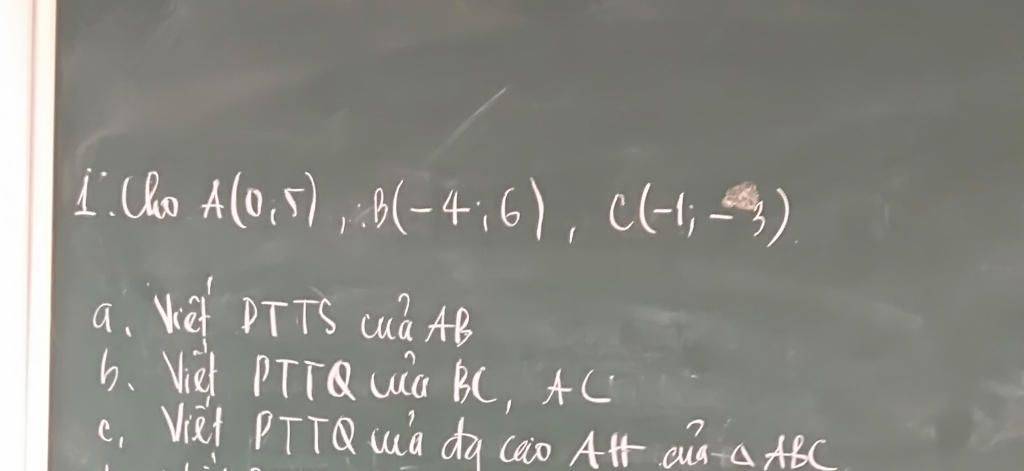 1. Cho A(0;5), B(-4;6), C(-1;-3)
a. Viết PTTS của AB
b. Viết PTTQ của BC, AC
c, Viết PTTQ của đg cao AH của △ ABC